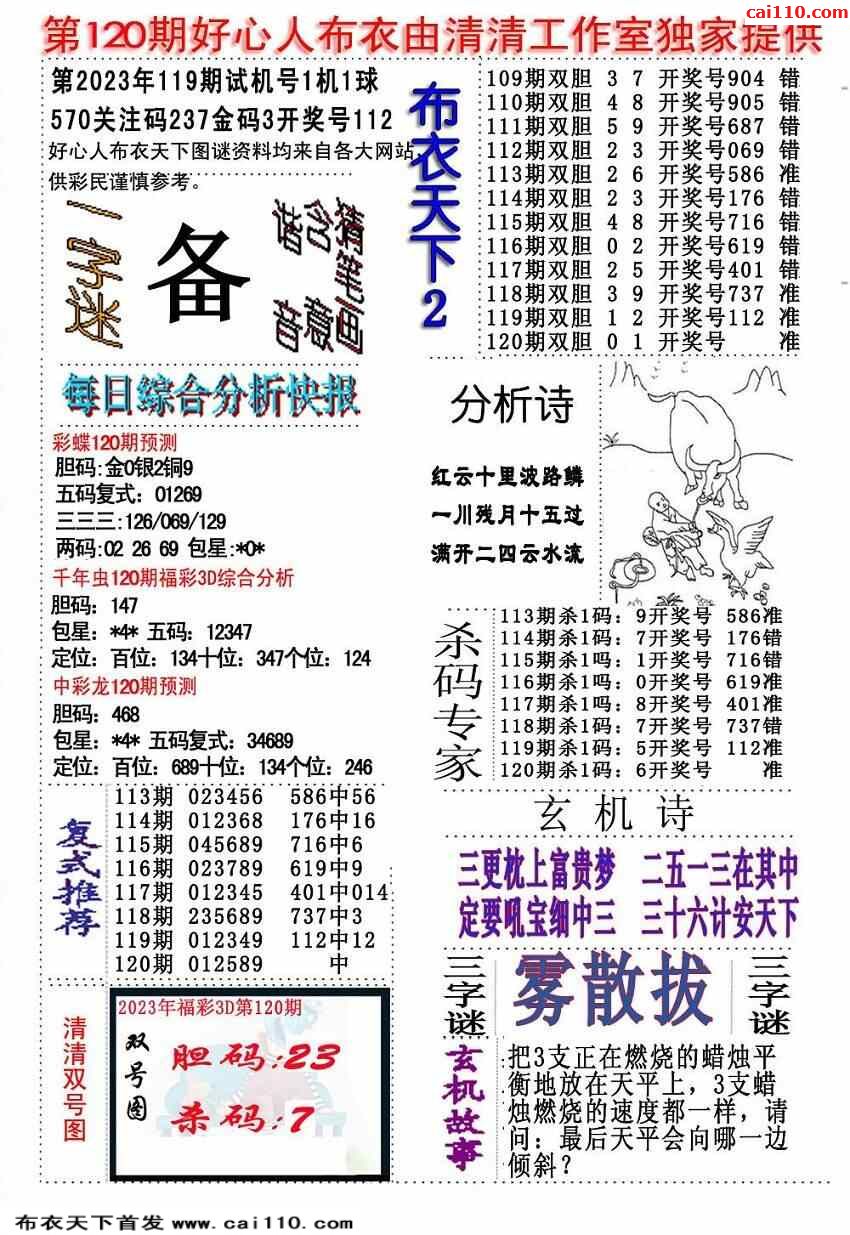 cai110.com
第120期好心人布衣由清清工作室独家提供
第2023年119期试机号1机1球
570关注码237金码3开奖号112
好心人布衣天下图谜资料均来自各大网站，
供彩民谨慎参考。
一字迷
备
猜笔画
含意
谐音
布衣天下2
109期双胆 3 7 开奖号904 错
110期双胆 4 8 开奖号905 错
111期双胆 5 9 开奖号687 错
112期双胆 2 3 开奖号069 错
113期双胆 2 6 开奖号586 准
114期双胆 2 3 开奖号176 错
115期双胆 4 8 开奖号716 错
116期双胆 0 2 开奖号619 错
117期双胆 2 5 开奖号401 错
118期双胆 3 9 开奖号737 准
119期双胆 1 2 开奖号112 准
120期双胆 0 1 开奖号 准
每日综合分析快报
彩蝶120期预测
胆码:金0银2铜9
五码复式：01269
三三三:126/069/129
两码:02 26 69 包星:*0*
千年虫120期福彩3D综合分析
胆码：147
包星：*4* 五码：12347
定位：百位：134十位：347个位：124
中彩龙120期预测
胆码：468
包星：*4* 五码复式：34689
定位：百位：689十位：134个位：246
分析诗
红云十里波路鳞
一川残月十五过
满开二四云水流
杀码专家
113期杀1码：9开奖号 586准
114期杀1码：7开奖号 176错
115期杀1吗：1开奖号 716错
116期杀1吗：0开奖号 619准
117期杀1吗：8开奖号 401准
118期杀1码：7开奖号 737错
119期杀1码：5开奖号 112准
120期杀1码：6开奖号 准
复式推荐
113期 023456 586中56
114期 012368 176中16
115期 045689 716中6
116期 023789 619中9
117期 012345 401中014
118期 235689 737中3
119期 012349 112中12
120期 012589 中
玄机诗
三更枕上富贵梦 二五一三在其中
定要吼宝细中三 三十六计安天下
三字谜
雾散拔
三字谜
清清双号图
2023年福彩3D第120期
双号图
胆码:23
杀码:7
玄机故事
把3支正在燃烧的蜡烛平
衡地放在天平上，3支蜡
烛燃烧的速度都一样，请
问：最后天平会向哪一边
倾斜？
布衣天下首发 www.cai110.com